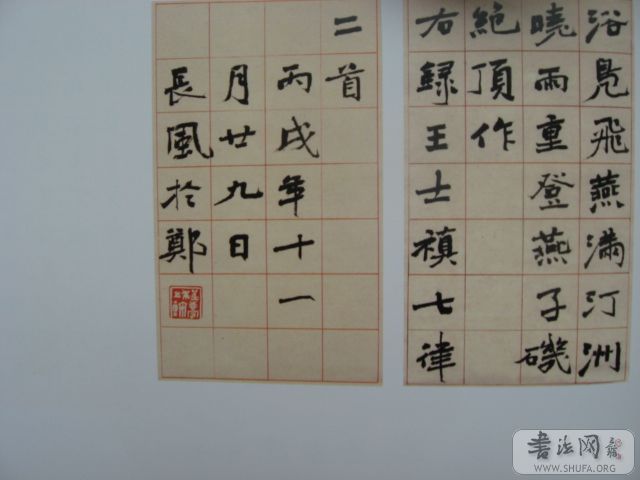 浴鳧飛燕滿汀洲
曉雨重登燕子磯
絶頂作
右録王士禛七律
二首
丙戌年十一
月廿九日
長風於鄭
書法网
WWW.SHUFA.ORG